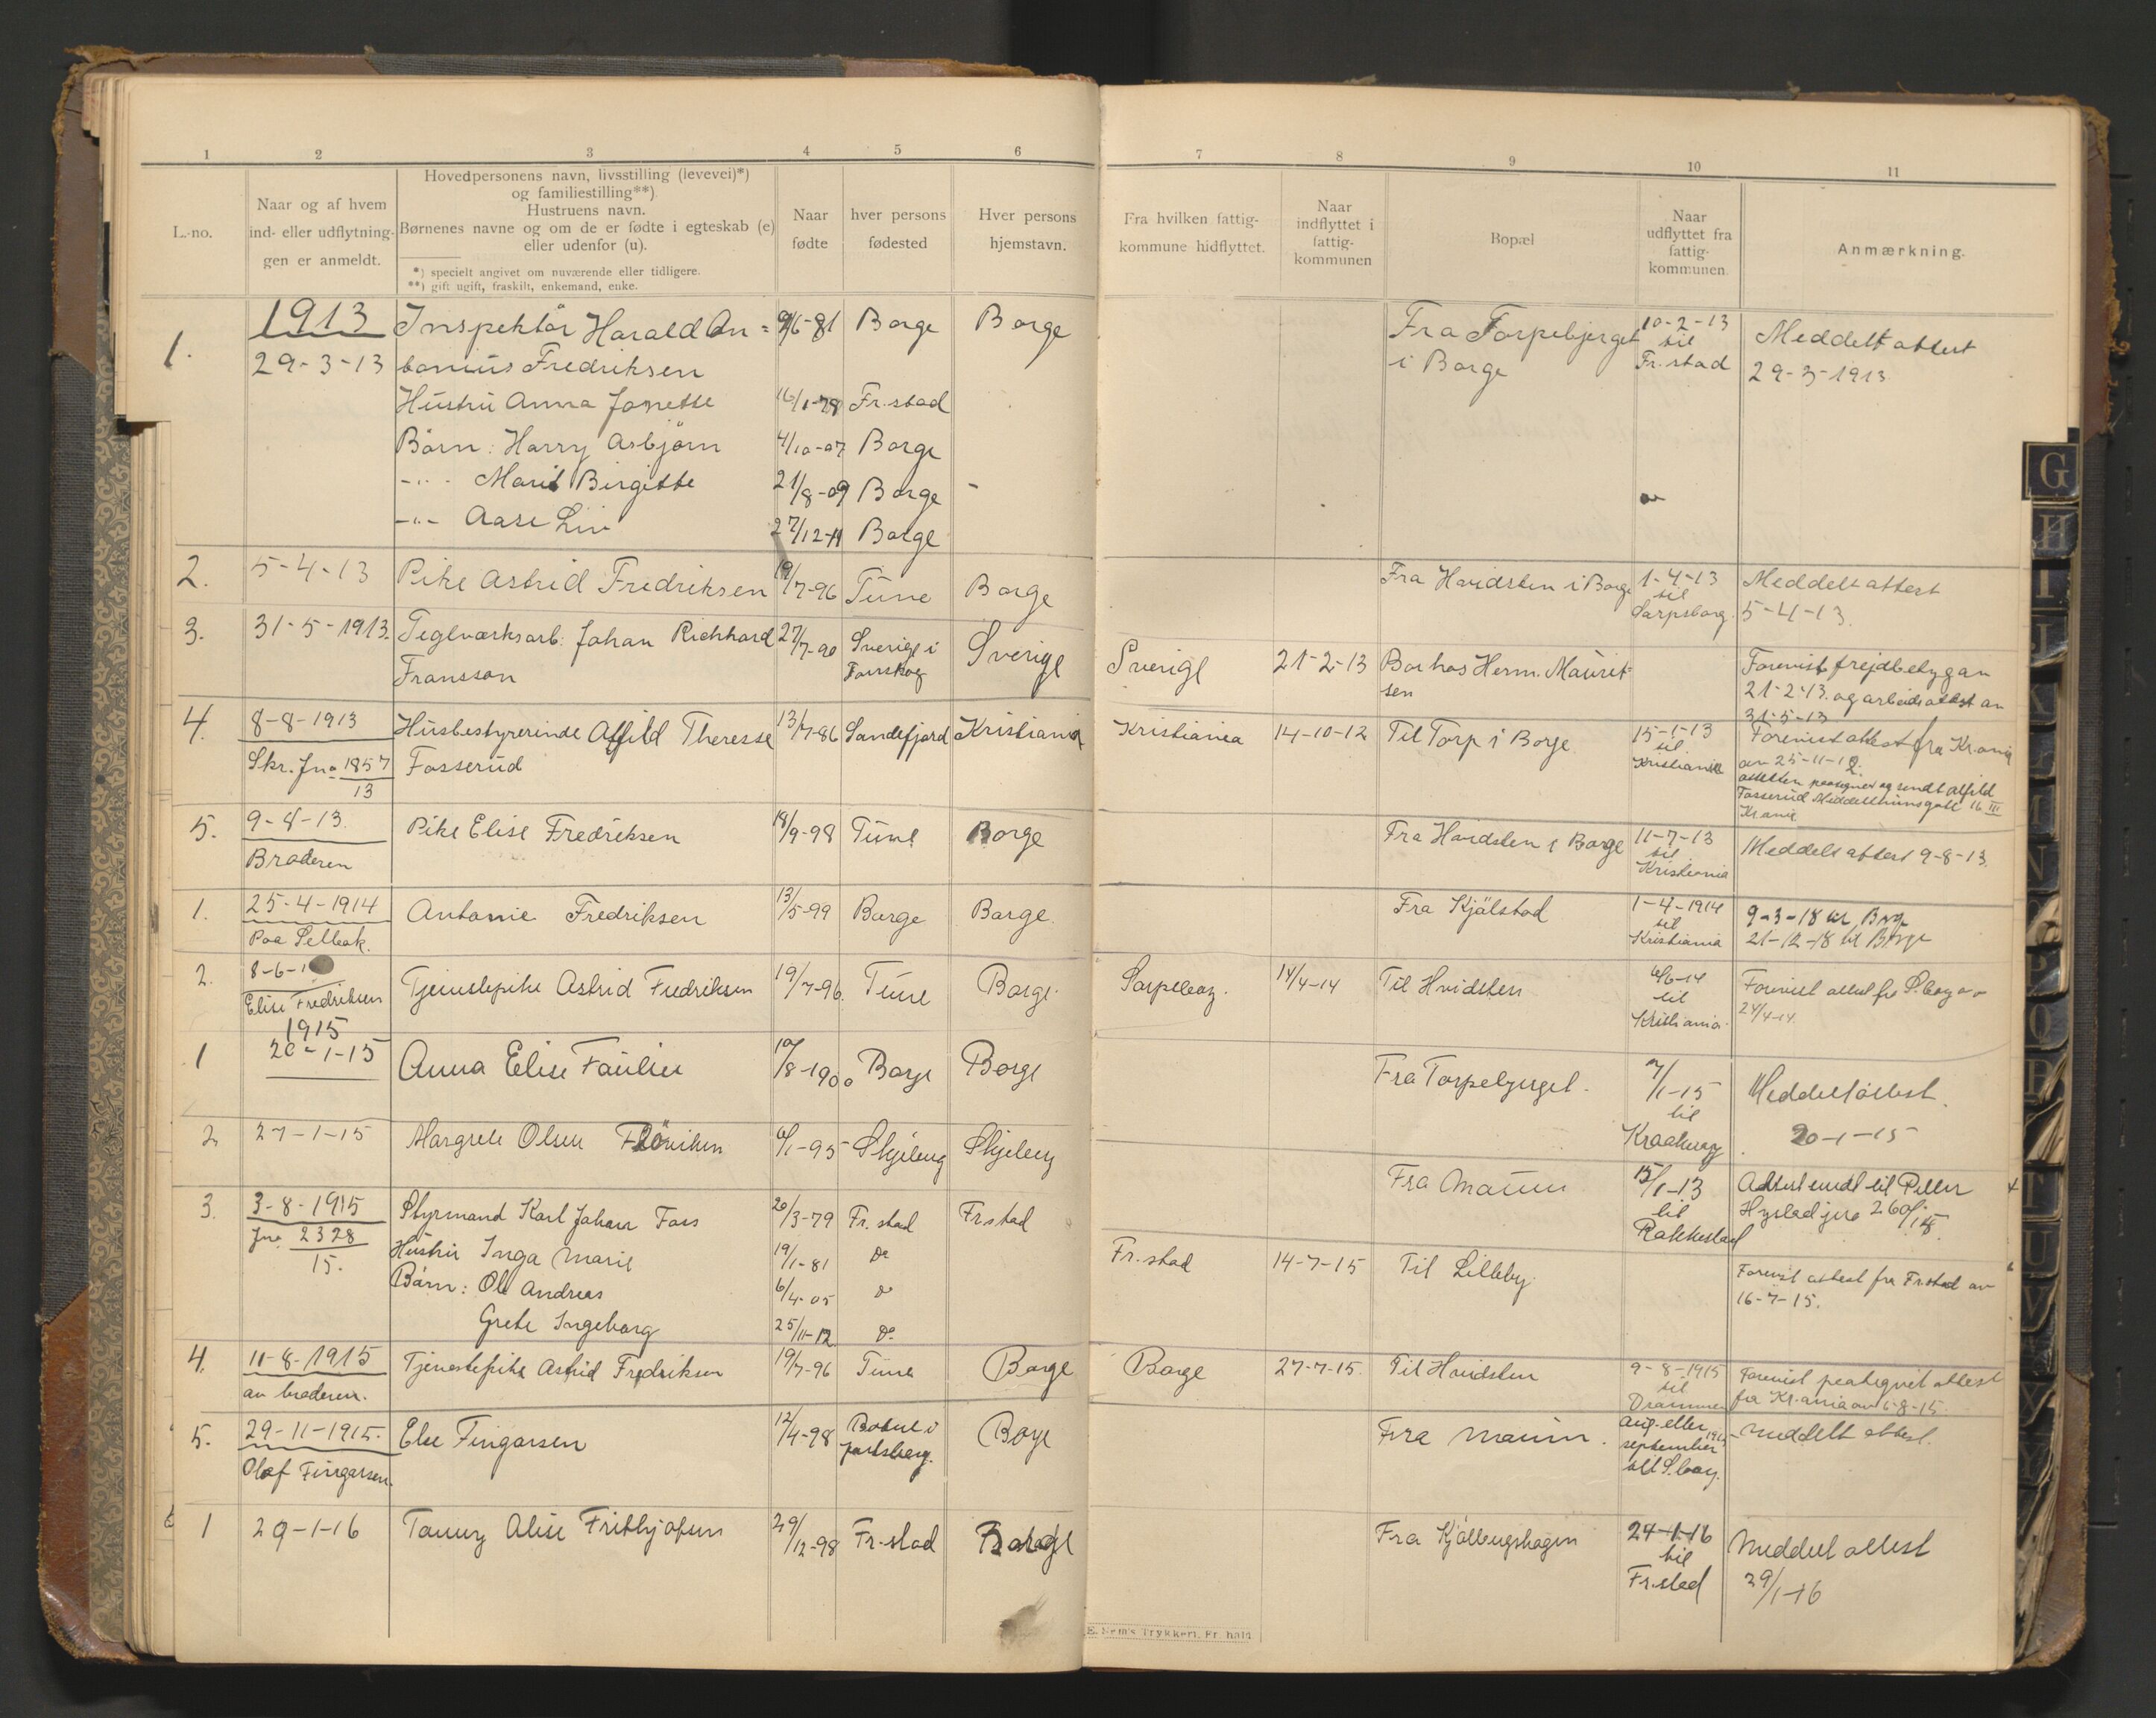 1 2 3 4 5 6 7 8 9 10 11
L.-no.
Naar og af hvem
ind- eller udflytnin-
gen er anmeldt.
Hovedpersonens navn, livsstilling (levevei)*)
og familiestilling**)
Hustruens navn.
Børnenes navne og om de er fødte i egteskab (e)
eller udenfor (u).
*) specielt angivet om nuværende eller tidligere.
**) gift ugift, fraskilt, enkemand, enke.
Naar
fødte
hver persons
fødested
Hver persons
hjemstavn.
Fra hvilken fattig-
kommune hidflyttet.
Naar
indflyttet i
fattig-
kommunen
Bopæl
Naar
udflyttet fra
fattig-
kommunen.
Anmærkning.
1913
1. 29-3-13
Inspektör Harald An=
tonius Fredriksen
9/6-81 Borge Borge
Hustru Anna Janette 16/1-78 Fr.stad
Börn: Harry Asbjörn 4/10-07 Borge
-"- Marit Birgitte 21/8-09 Borge -
-"- Aase Liv 27/12-11 Borge
Fra Torpebjerget
i Borge
10-2-13
til
Fr.stad
Meddelt attest
29-3-1913
2. 5-4-13 Pike Astrid Fredriksen 19/7-96 Tune Borge
Fra Hvidsten i Borge
1-4-13
til
Sarpsborg.
Meddelt attest
5-4-13.
3. 31-5-1913. Teglværksarb. Johan Richhard
Fransson
27/7-90 Sverige i
Torrskog
Sverige
Sverige 21-2-13 Bor hos Herm. Maurit-
sen
Forevist frejdbetyg av
21-2-13. og arbeidsattest av
31-5-13
4. 8-8-1913
Skr. Jno 1857
13
Husbestyrerinde Alfild Theresse
Fosserud
13/7-86 Sandefjord Kristiania
Kristiania 14-10-12 Til Torp i Borge
15-1-13
til
Kristiania
Forevist attest fra Kr.ania
av 25-11-12.
attesten paategnet og sendt Alfild
Fosserud Middelthunsgate 16 III
Kr.ania
5. 9-8-13.
Broderen
Pike Elise Fredriksen 18/9-98 Tune Borge
Fra Hvidsten i Borge
11-7-13
til
Kristiania
Meddelt attest 9-8-13.
1. 25-4-1914
Paa Selbak.
Antonie Fredriksen 13/5-99 Borge Borge.
Fra Kjölstad
1-4-1914
til
Kristiania
9-3-18 til Borge
21-12-18 til Borge
2. 8-6-1
Elise Fredriksen
Tjenestepike Astrid Fredriksen 19/7-96. Tune Borge.
Sarpsborg. 14/4-14 Til Hvidsten
6/6-14
til
Kristiania.
Forevist attest fra S.borg av
24/4-14.
1915
1 20-1-15
Anna Elise Faulin 10/8-1900 Borge Borge
Fra Torpebjerget.
7/1-15
til
Kraakerøy
Meddelt attest.
20-1-15
2 27-1-15 Margrete Olsen 6/1-95 Skjeberg Skjeberg
Fra Maum
15/1-13
til
Rakkestad
Attest sendt til
3. 3-8-1915
Jno 2328
15.
Styrmand Karl Johan Foss 20/3-79 Fr.stad Fr.stad
Hustru Inga Marie 19/1-81 Do
Börn: Ole Andreas 6/4-05 Do
Grete Ingeborg 25/11-12 Do
Fr.stad 14-7-15 Til Lilleby.
Forevist attest fra Fr.stad av
16-7-15.
4. 11-8-1915
av broderen.
Tjenestepike Astrid Fredriksen 19/7-96 Tune Borge
Borge 27-7-15. Til Hvidsten
9-8-1915
til
Drammen
Forevist paategnet attest
fra Kr.ania av 6-8-15.
5. 29-11-1915.
Olaf Fingarsen.
Else Fingarsen 12/4-98 Borge
Fra Maum.
aug. eller
september 1915
til S.borg.
Meddelt attest.
1 29-1-16 Fanny Alise Frithjofsen 29/12-98 Fr.stad Borge
Fra Kjölbergshagen
24-1-16
til
Fr.stad
Meddelt attest
29/1-16
E. Nem's Trykkeri, Fr.hald
G
H
I
J
K
L
M
N
O
P
Q
R
T
U
V
Y